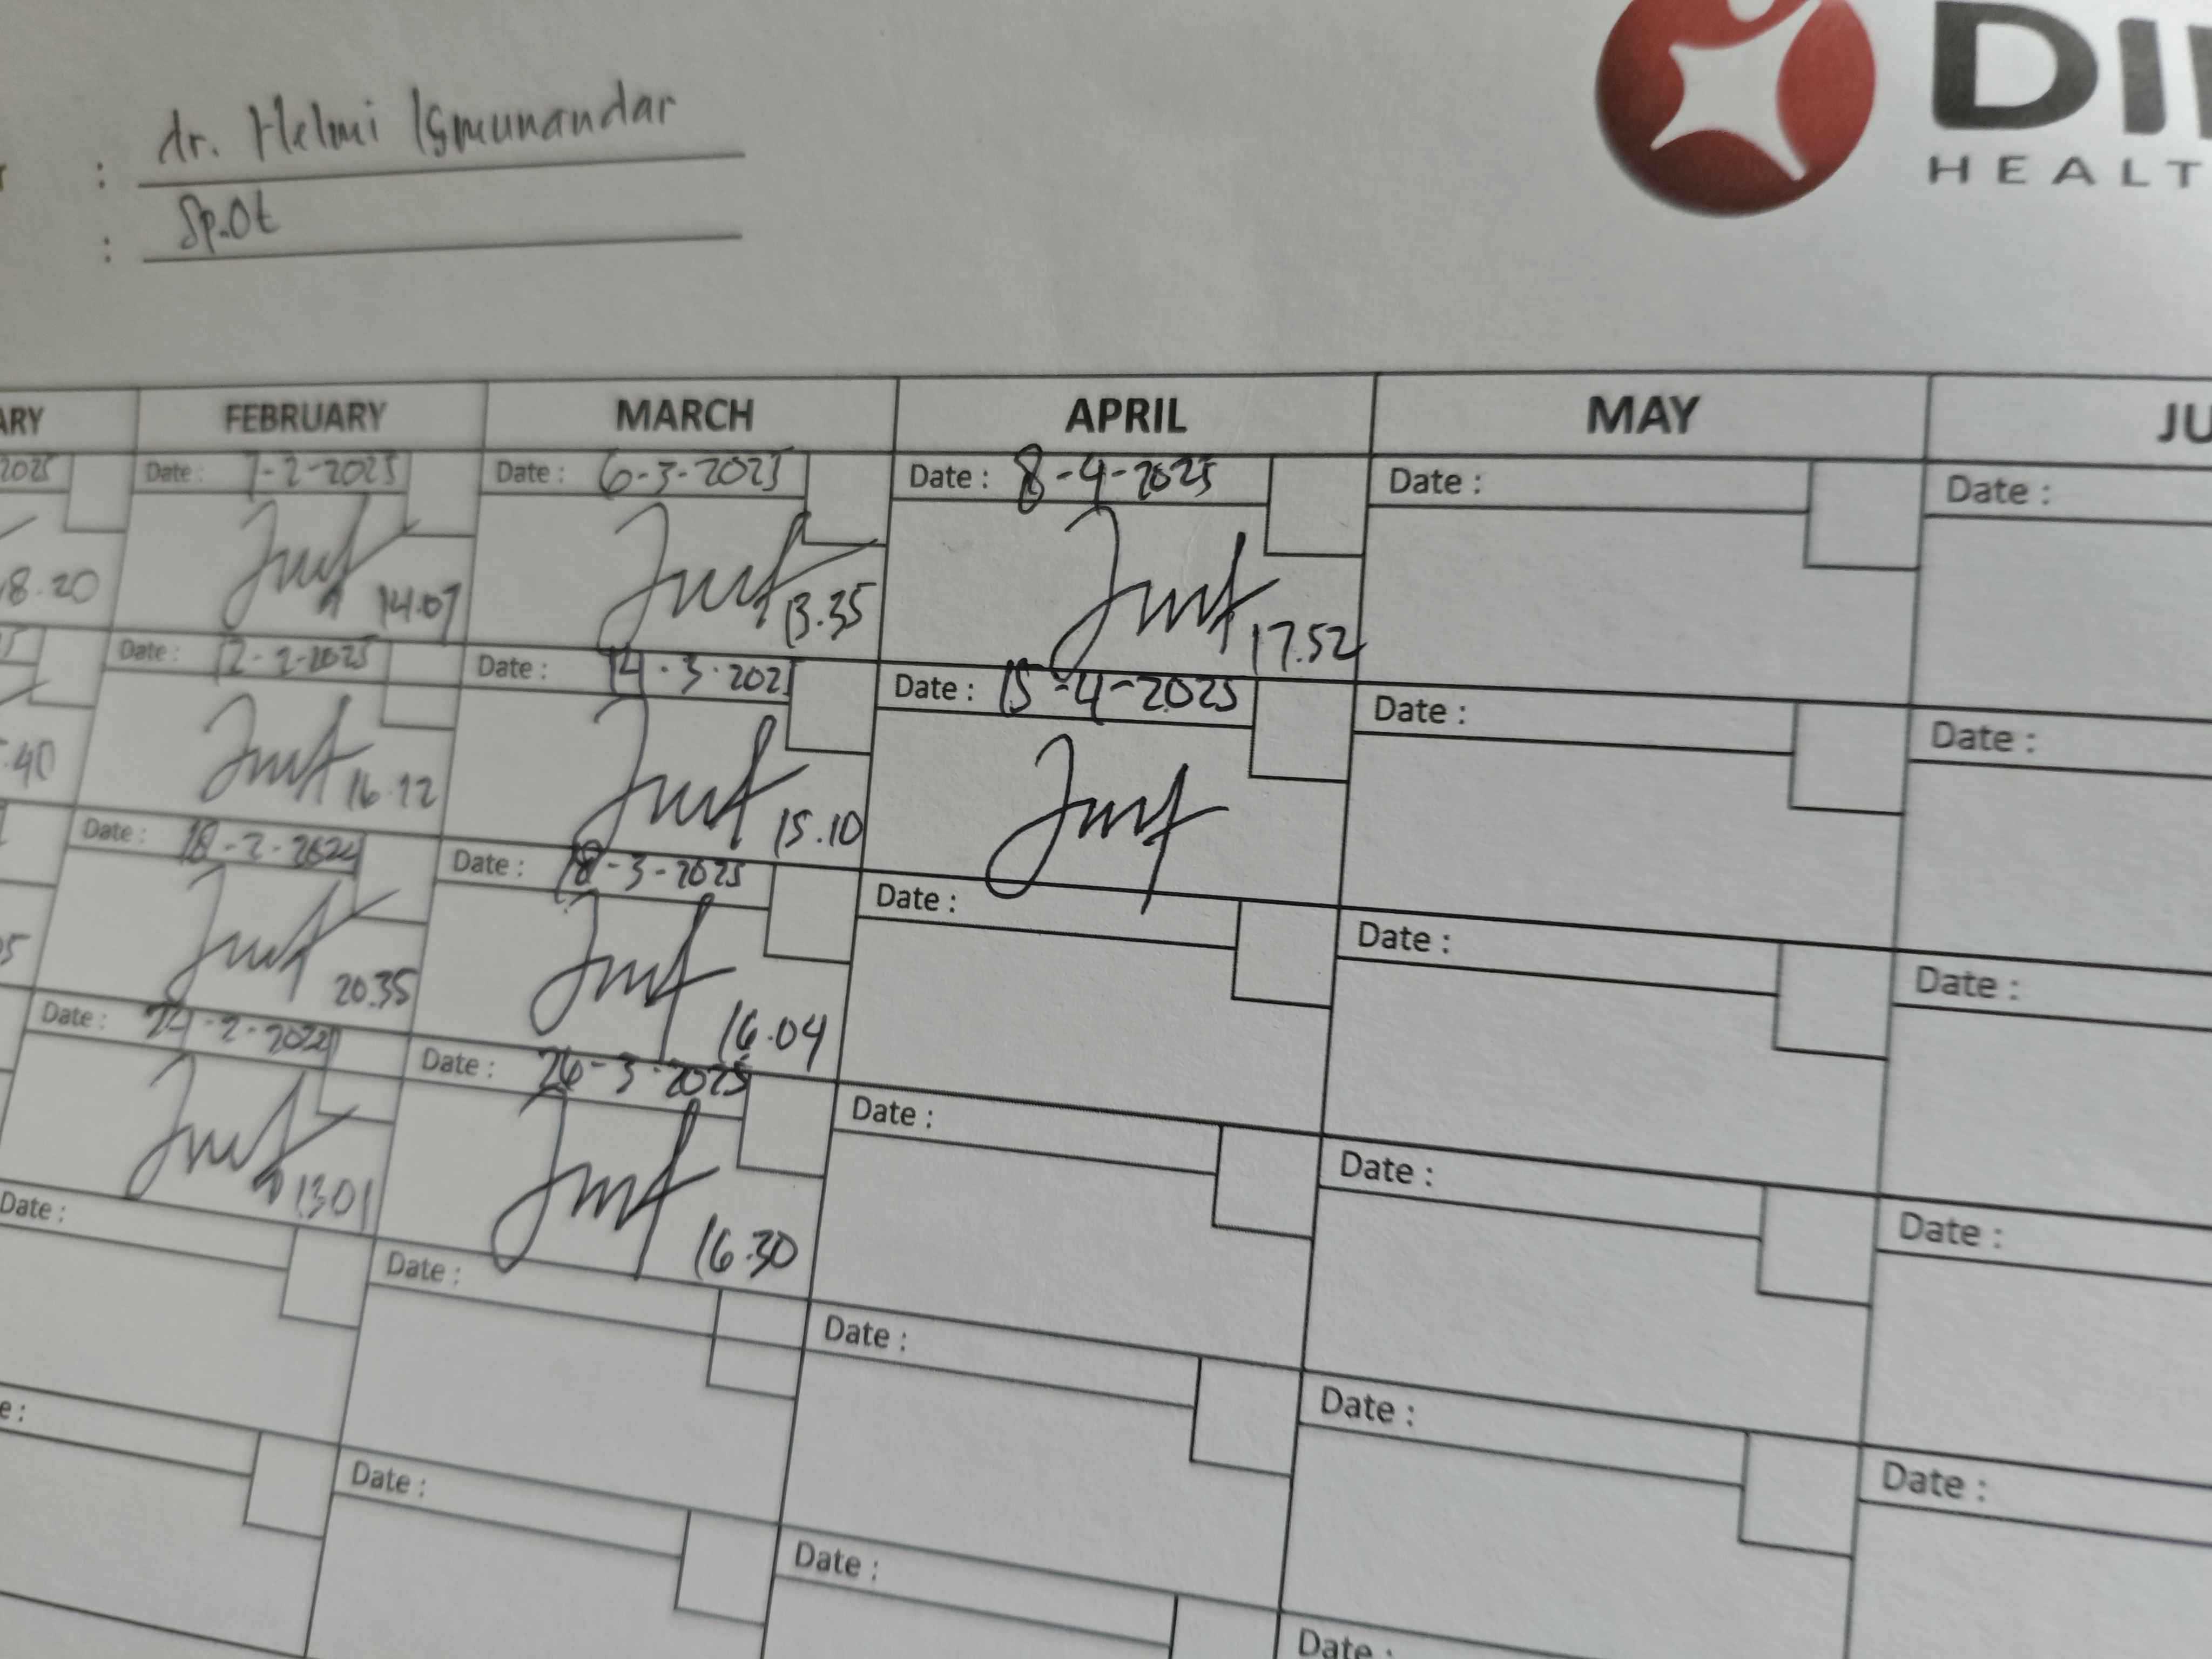 : dr. Helmi Ismunandar
: Sp.Ot
HEALT
FEBRUARY MARCH APRIL MAY
2025 Date : 7-2-2025 Date : 6-3-2025 Date : 8-4-2025 Date : Date :
18.20 14.07 13.35 17.52
Date : 12-2-2025 Date : 14.3.2025 Date : 15-4-2025 Date : Date :
.40 16.12 15.10
Date : 18-2-2025 Date : 18-3-2025 Date : Date : Date :
20.35 16.04
Date : 24-2-2025 Date : 26-3-2025 Date : Date : Date :
13.01 16.30
Date : Date : Date : Date : Date :
Date : Date : Date :